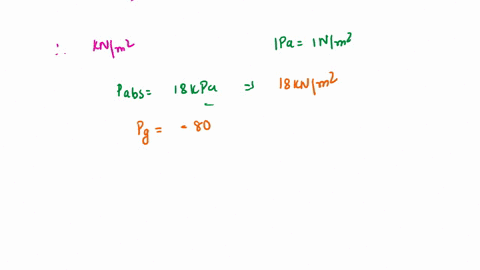 ∴ KN/m² 1Pa = 1N/m²
Pabs = 18KPa ⇒ 18KN/m²
Pg = - 80